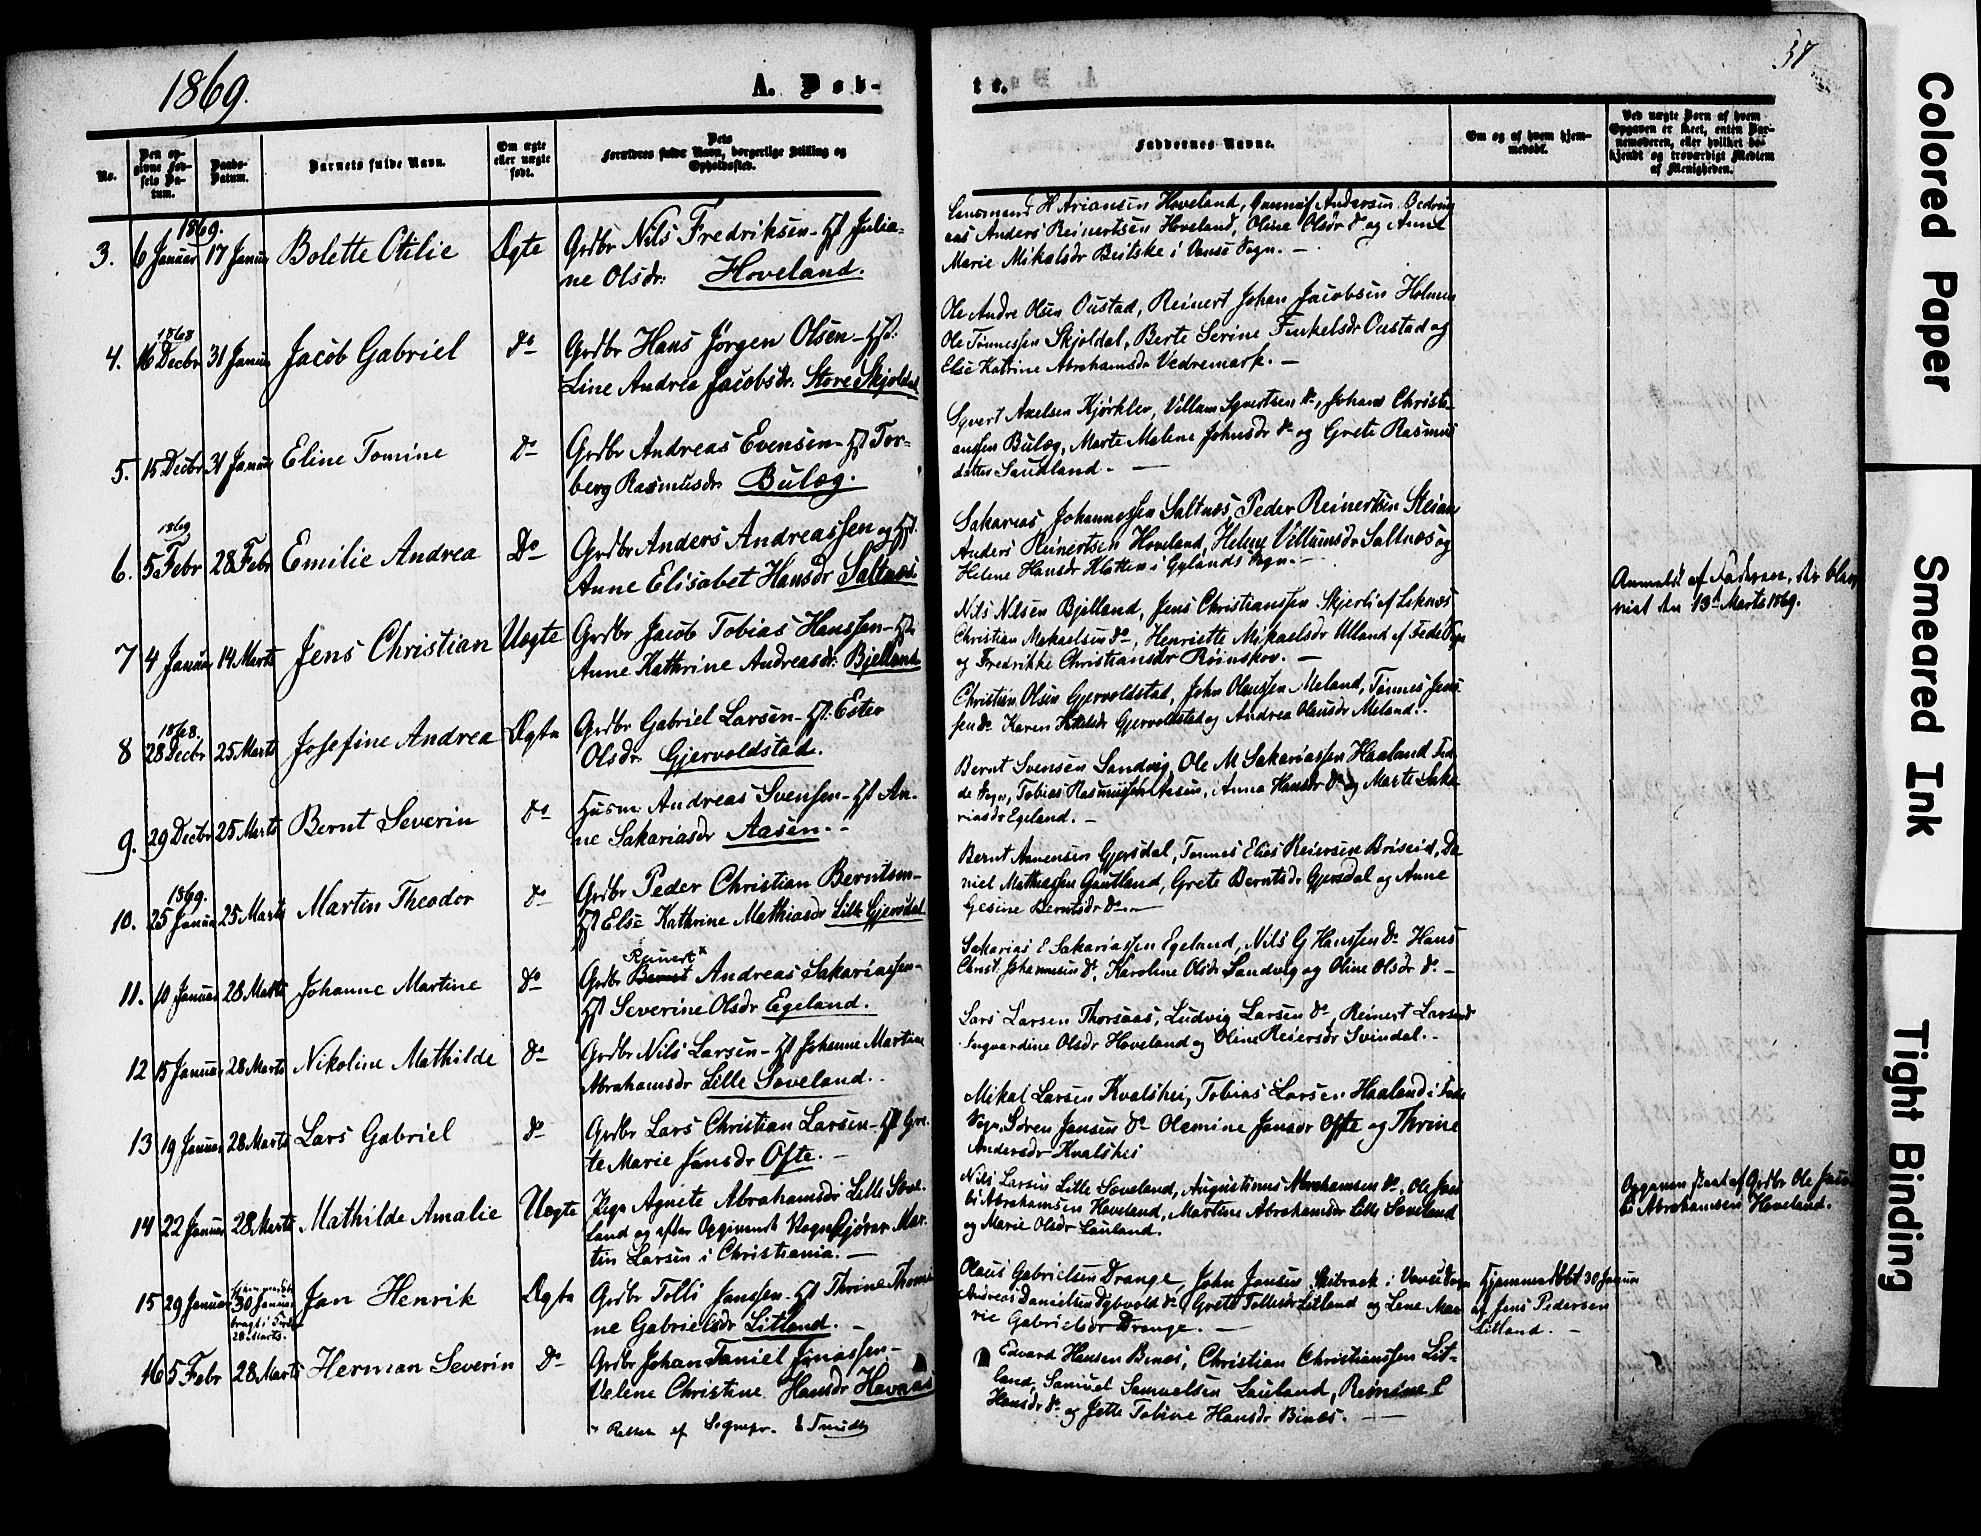 1869.
A. Døb-
te.
57
No.
Den op-
givne Fød-
sels Da-
tum.
Daabs-
Datum.
Barnets fulde Navn.
Om ægte
eller uægte
født.
Dets
Forældres fulde Navn, borgerlige Stilling og
Opholdssted.
Faddernes Navne.
Om og af hvem hjem-
medøbt.
Ved uægte Børn af hvem
Opgaven er skeet, enten Bar-
nemoderen, eller hvilket be-
kjendt og troværdigt Medlem
af Menigheden.
1869.
3. 6 Januar 17 Januar Bolette Otilie Ægte Grdbr Nils Fredriksen - Hst Julia-
ne Olsdr. Hoveland.
Lensmand H Ariansen Hoveland, Andersen
Anders Reinertsen Hoveland, Oline Olsdr do og Anne
Marie Mikalsdr Beitske i Vanse Sogn. -
1868
4. 16 Decbr 31 Januar Jacob Gabriel do Grdbr Hans Jørgen Olsen - Hst.
Line Andrea Jacobsdr. Store Skjoldal
Ole Andre Olsen Oustad, Reinert Johan Jacobsen Holmen
Ole Tønnessen Skjoldal, Berte Serine Tinkelsdr Oustad og
Else Katrine Abrahamsdr Vedremark. -
5. 15 Decbr 31 Januar Eline Tomine do Grdbr Andreas Evensen - Hst Tor-
berg Rasmusdr. Bulæg.
Syvert Axelsen Kjørklev, Villum Syvertsen do, Johans Christi-
anssen Bulæg, Marte Malene Johnsdr do og Grete Rasmus
datter Saudland. -
1869
6. 5 Febr 28 Febr Emilie Andrea Do Grdbr Anders Andreassen og Hst.
Anne Elisabet Hansdr Saltnæs.
Sakarias Johannessen Saltnæs, Peder Reinertsen
Anders Reinertsen Hoveland, Helene Villumsdr Saltnæs og
Helene Hansdr Klatten i Gylands Sogn. -
7 4 Januar 14 Marts Jens Christian Uægte Grdbr Jacob Tobias Hanssen - Hst.
Anne Kathrine Andreasdr. Bjelland
Nils Nilsen Bjelland, Jens Christianssen Skjerli af Leknæs
Christian Mikaelsen do, Henriette Mikaelsdr Ulland af Fede Sogn
og Fredrikke Christiansdr Røinskov. -
Anmeldt af Faderen,
den 13 Marts 1869.
1868.
8 28 Decbr 25 Marts Josefine Andrea Ægte Grdbr Gabriel Larsen - Hst. Ester
Olsdr. Gjervoldstad.
Christian Olsen Gjervoldstad, John Olaussen Meland, Tønnes Jens-
sen do Karen Gjervoldstad og Andrea Olausdr Meland. -
9. 29 Decbr 25 Marts Bernt Severin do Husm. Andreas Svensen - Hst An-
ne Sakariasdr Aasen. -
Bernt Svensen Sandvig, Ole M Sakariassen Haaland Fe-
de Sogn, Tobias Rasmussen Aasen, Anna Hansdr do og Marte Saka-
riasdr Egeland. -
1869.
10. 25 Januar 25 Marts Martin Theodor do Grdbr Peder Christian Berntsen -
Hst Else Kathrine Mathiasdr Lille Gjersdal
Bernt Gjersdal, Tønnes Elias Reiersen Briseid, Da-
niel Mathiassen Gautland, Grete Berntsdr Gjersdal og Anne
Gesine Berntsdr do -
Reinert*
11. 10 Januar 28 Marts Johanne Martine do Grdbr Bernt Andreas Sakariassen -
Hst Severine Olsdr Egeland.
Sakarias E Sakariassen Egeland, Nils G Hanssen do Hans
Christ. Johannesen do, Karoline Olsdr Sandvig og Oline Olsdr do -
12 15 Januar 28 Marts Nikoline Mathilde do Grdbr Nils Larsen - Hst Johanne Martine
Abrahamsdr Lille Soveland. -
Lars Larsen Thorsaas, Ludvig Larsen do, Reinert Larsen do
Ingvardine Olsdr Hoveland og Oline Reiersdr Svindal. -
13 19 Januar 28 Marts Lars Gabriel do Grdbr Lars Christian Larsen - Hst Gre-
te Marie Jansdr Ofte. -
Mikal Larsen Kvalshei, Tobias Larsen Haaland i Fede
Sogn, Søren Jansen do Olemine Jansdr Ofte og Thrine
Andersdr Kvalshei
14 22 Januar 28 Marts Mathilde Amalie Uægte Pige Agnete Abrahamsdr Lille Sove-
land og efter Opgivende Mar-
tin Larsen i Christiania. -
Nils Larsen Lille Soveland, Augustinus Abrahamsen do, Ole Jaco-
bs Abrahamsen Hoveland, Martine Abrahamsdr Lille Soveland
og Marie Olsdr Lauland.
Opgaven skeet af Grdbr Ole Jaco-
bs Abrahamsen Hoveland.
15 29 Januar 30 Januar
bragt i
28 Marts. Jan Henrik Ægte Grdbr Tolli Janssen - Hst Thrine Thoma-
ne Gabrielsdr Litland. -
Olaus Gabrielsen Drange, John Jansen Skibraak i Vanse Sogn
Andreas Danielsen Dybvold do, Grete Tollisdr Litland og Lene Ma-
rie Gabrielsdr Drange. -
Hjemmedøbt 30 Januar
af Jens Pedersen
Litland. -
16 5 Febr 28 Marts Herman Severin Do Grdbr Johan Daniel Jonassen -
Velene Christine Hansdr Hovnæs
Edvard Hansen Binæs, Christian Christianssen Lit-
land, Samuel Samuelsen Lauland, Reinine
Hansdr do og Jette Tobine Hansdr Binæs. -
* Rettet af Sognepr.
Colored Paper
Smeared Ink
Tight Binding